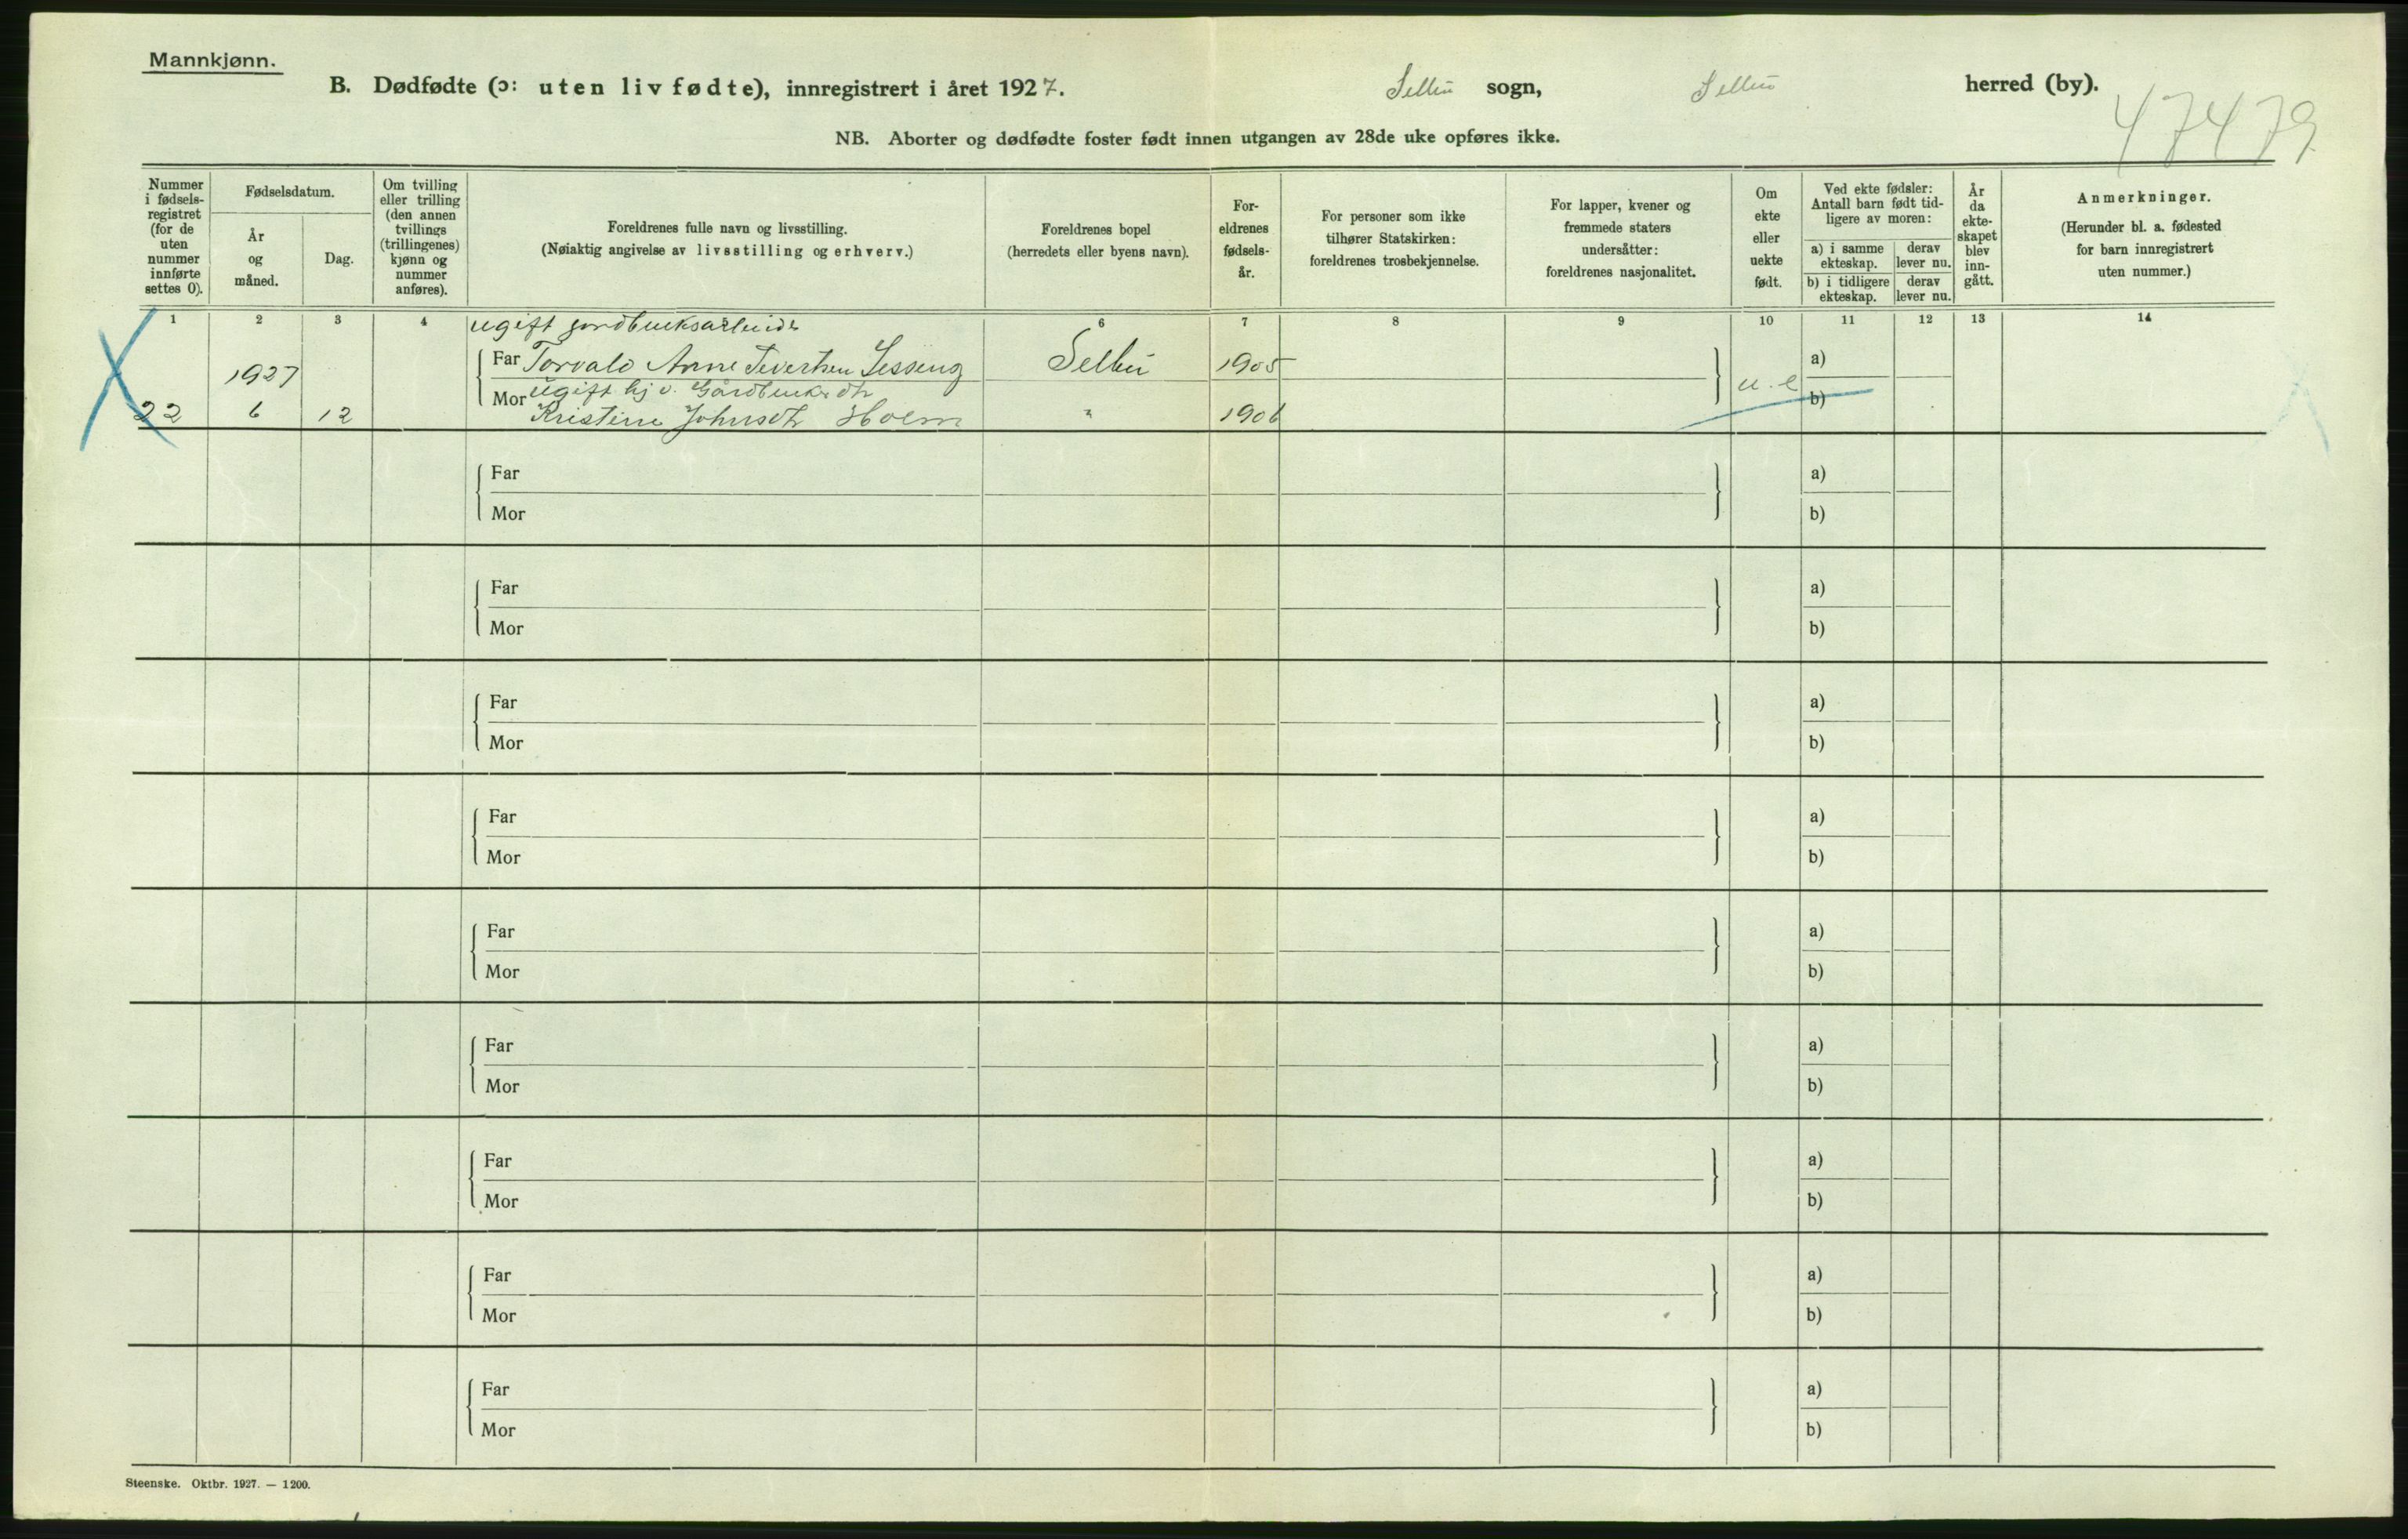 Mannkjønn.
B. Dødfødte (ɔ: uten liv fødte), innregistrert i året 1927.
Selbu sogn, Selbu herred (by).
47479
NB. Aborter og dødfødte foster født innen utgangen av 28de uke opføres ikke.
Nummer
i fødsels-
registret
(for de
uten
nummer
innførte
settes 0).
Fødselsdatum.
År
og
måned.
Dag.
Om tvilling
eller trilling
(den annen
tvillings
(trillingenes)
kjønn og
nummer
anføres).
Foreldrenes fulle navn og livsstilling.
(Nøiaktig angivelse av livsstilling og erhverv.)
Foreldrenes bopel
(herredets eller byens navn).
For-
eldrenes
fødsels-
år.
For personer som ikke
tilhører Statskirken:
foreldrenes trosbekjennelse.
For lapper, kvener og
fremmede staters
undersåtter:
foreldrenes nasjonalitet.
Om
ekte
eller
uekte
født.
Ved ekte fødsler:
Antall barn født tid-
ligere av moren:
a) i samme
ekteskap.
derav
lever nu.
b) i tidligere
ekteskap.
derav
lever nu.
År
da
ekte-
skapet
blev
inn-
gått.
Anmerkninger.
(Herunder bl. a. fødested
for barn innregistrert
uten nummer.)
1 2 3 4 6 7 8 9 10 11 12 13 14
ugift jordbruksarbeider
Far Torvald Arne Sivertsen Lesseng Selbu 1905 a)
1927
ugift hj v. Gårdbruker dtr u. e
Mor b)
22 6 12 Kristine Johnsdtr Holm " 1906
Far a)
Mor b)
Far a)
Mor b)
Far a)
Mor b)
Far a)
Mor b)
Far a)
Mor b)
Far a)
Mor b)
Far a)
Mor b)
Far a)
Mor b)
Far a)
Mor b)
Steenske. Oktbr. 1927. — 1200.